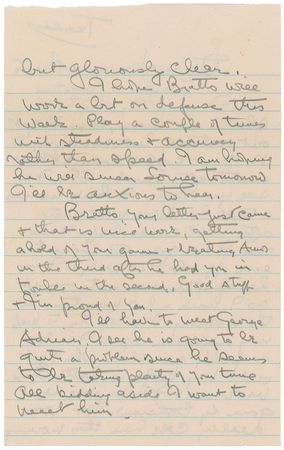 but gloriously clear.
I hope Bratto will
work a lot on defense this
week. Play a couple of times
with steadiness & accuracy
rather than speed. I am hoping
he will swear
I'll be anxious to hear.
Bratto, your letter just came
& that is nice work, getting
ahold of your game & beating
in the third after he had you in
in the second. Good stuff
& I'm proud of you.
I'll have to meet George
Adrian. I see he is going to be
quite a problem since he seems
to be taking plenty of your time
All kidding aside I want to
meet him.